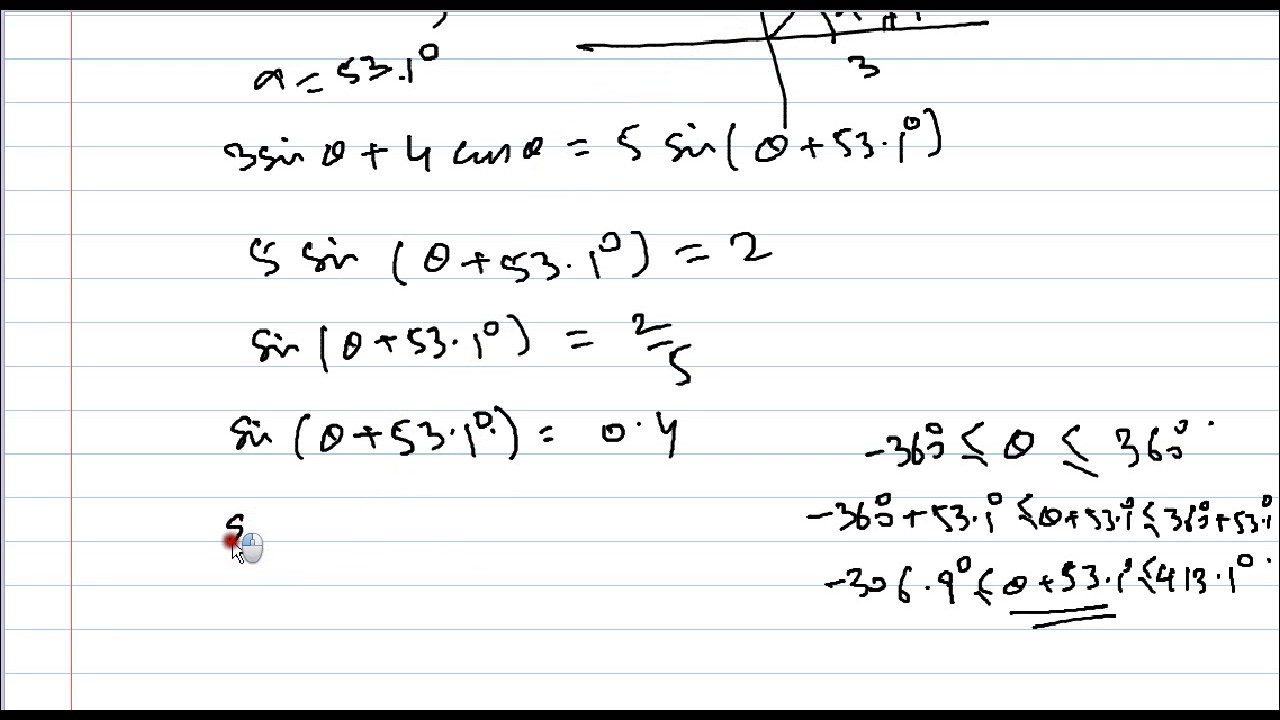 3
a = 53.1°
3 sin θ + 4 cos θ = 5 sin(θ + 53.1°)
5 sin (θ + 53.1°) = 2
sin (θ + 53.1°) = 2/5
sin (θ + 53.1°) = 0.4
-360° ≤ θ ≤ 360°
-360° + 53.1° ≤ θ + 53.1° ≤ 360° + 53.1°
-306.9° ≤ θ + 53.1° ≤ 413.1°
s